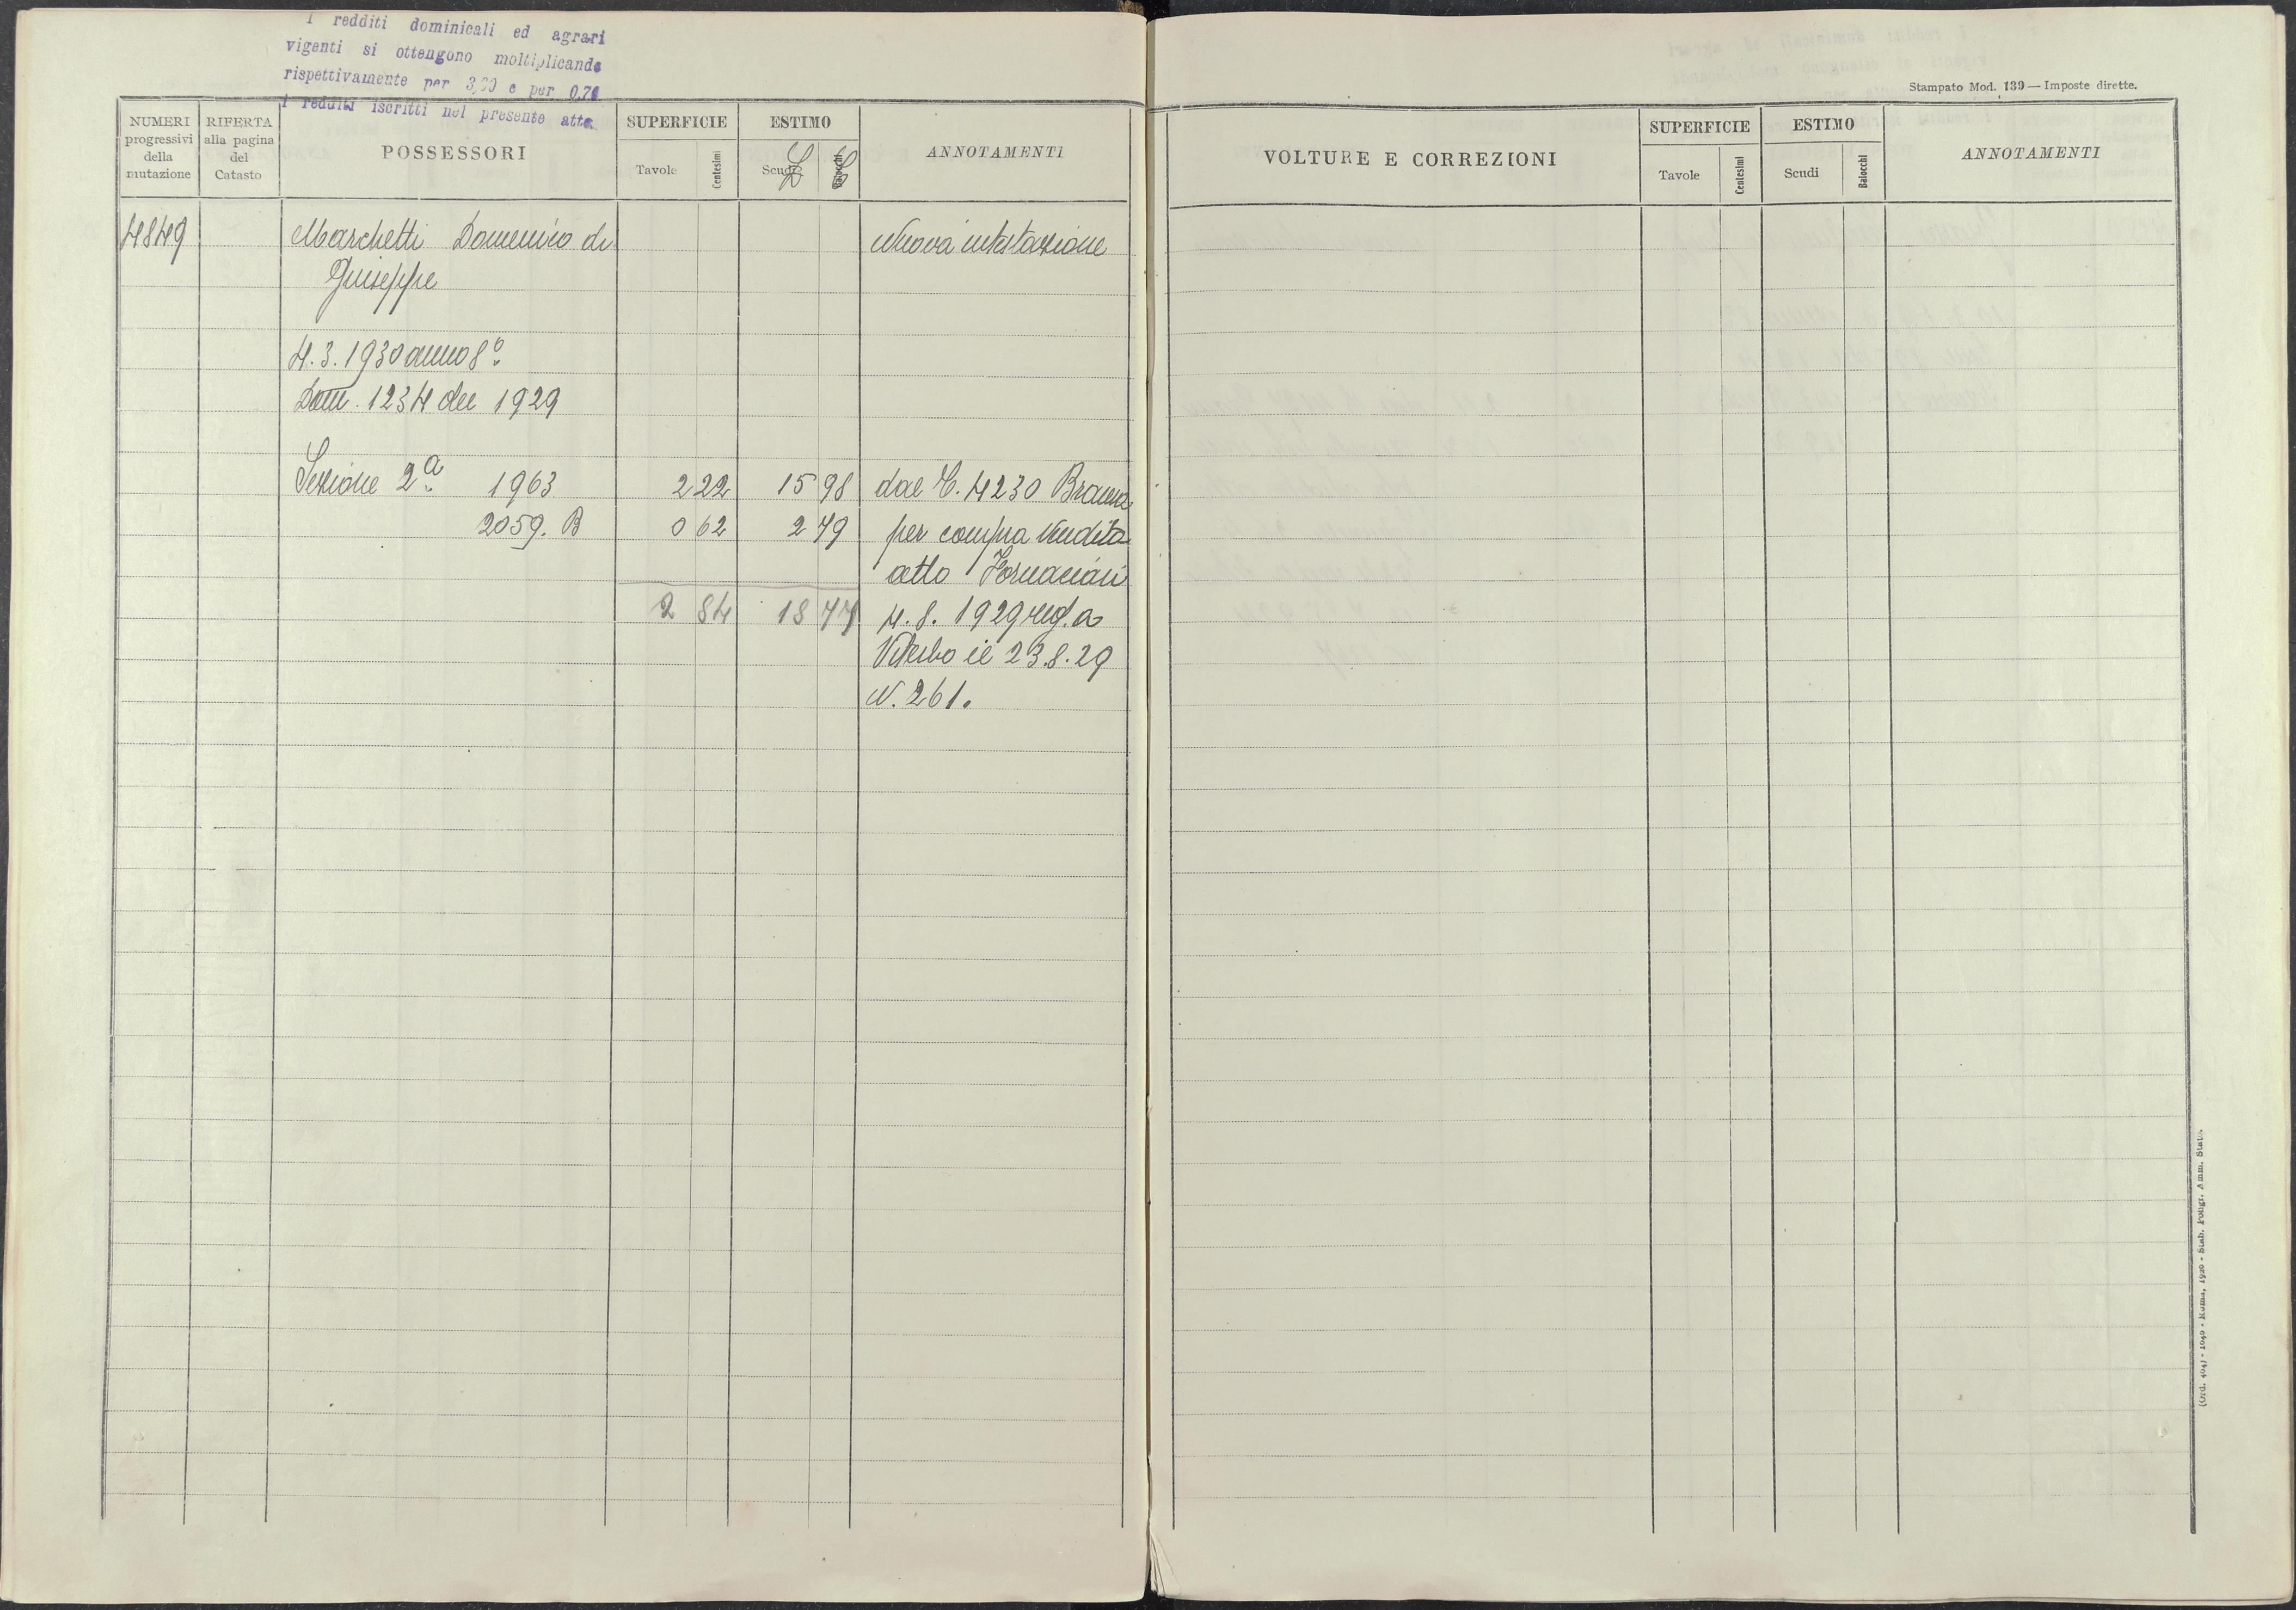 I redditi dominicali ed agrari
vigenti si ottengono moltiplicando
rispettivamente per e per 0,70
I redditi iscritti nel presente atto
NUMERI progressivi della mutazione
RIFERTA alla pagina del Catasto
POSSESSORI
SUPERFICIE
Tavole Centesimi
ESTIMO
Scudi L Baiocchi C
ANNOTAMENTI
4849 Marchetti Domenico di Nuova intestazione
Giuseppe
4.3.1930 anno 8º
Dom. 1234 del 1929
Sezione 2ª 1963 2 22 15 98 dal C. 4230
2059. B 0 62 2 79 per compra vendita
atto Fornaciari
2 84 18 77 4.8.1929 reg. a
Viterbo il 23.8.29
N. 261.
Stampato Mod. 139 — Imposte dirette.
VOLTURE E CORREZIONI
SUPERFICIE
Tavole Centesimi
ESTIMO
Scudi Baiocchi
ANNOTAMENTI
Roma, 1929 - Stab. Poligr. Amm. Stato.